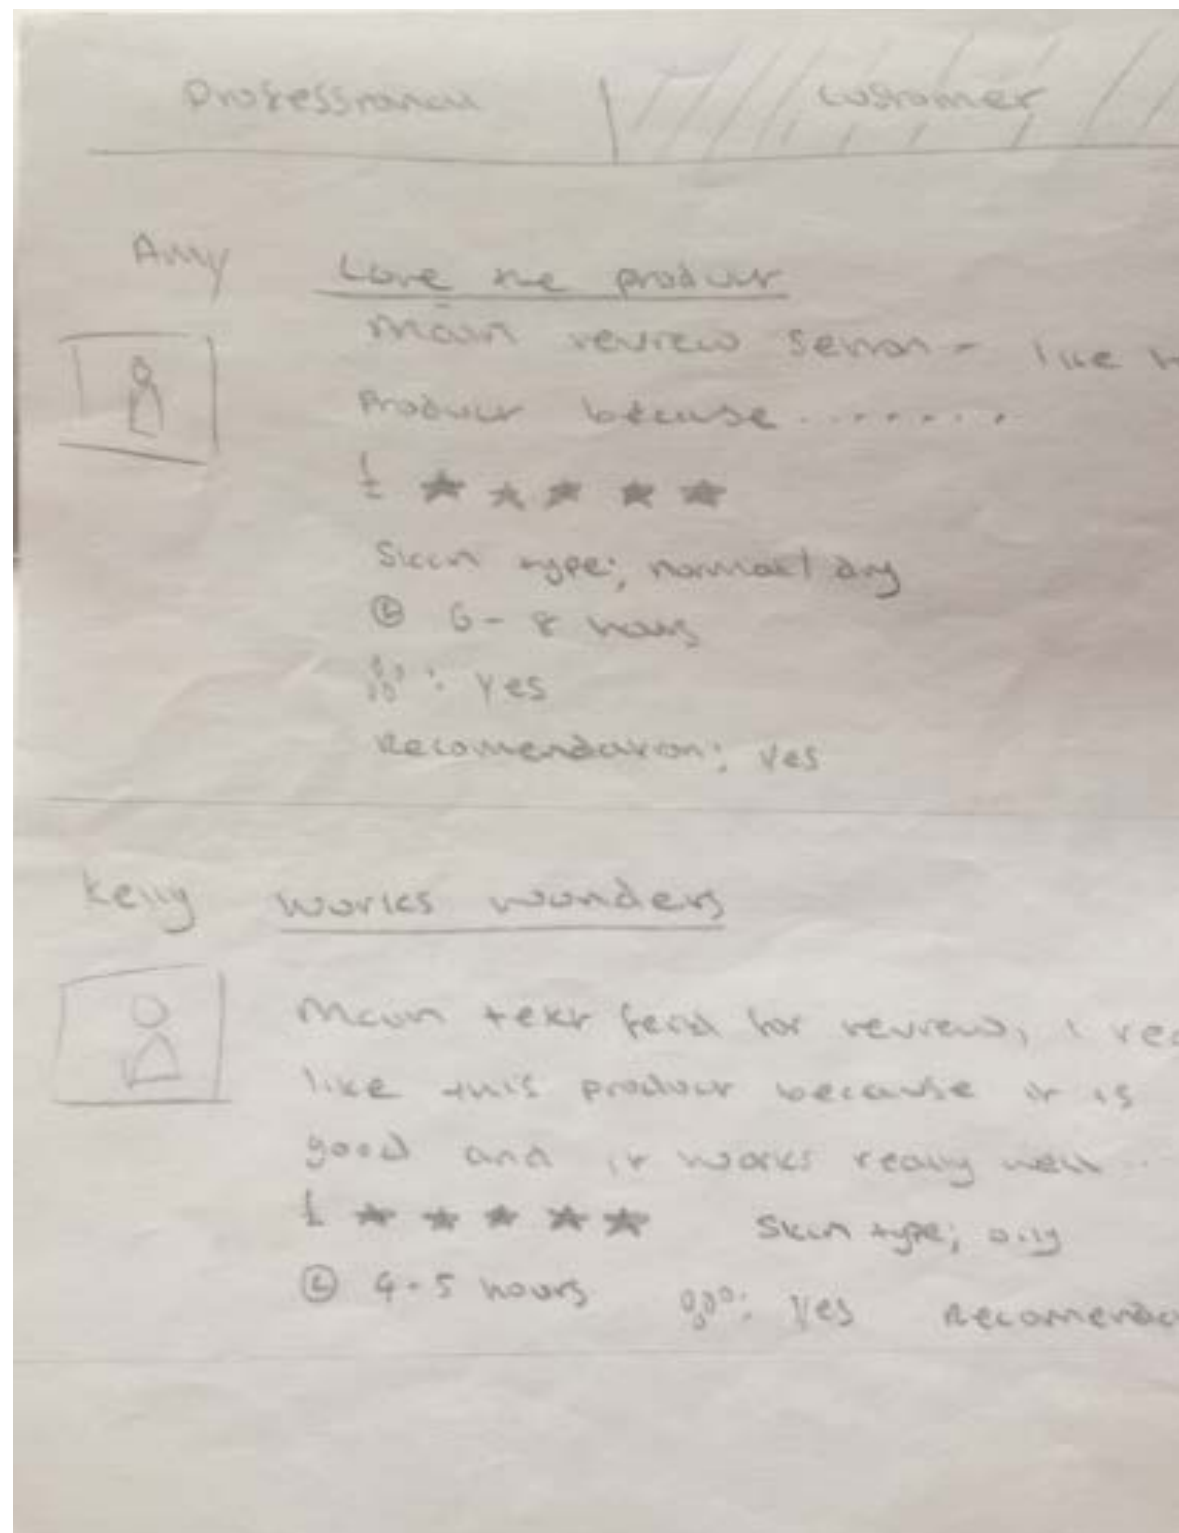 Professional customer
Amy
Love the product
Main review section - like t
product because ........
£ ★★★★★
Skin type; normal/dry
6-8 hours
: Yes
Recomendation; Yes
Kelly works wonders
Main text feild for review, i rea
like this product because it is
good and it works really well ...
£ ★★★★★ Skin type; oily
4-5 hours : Yes Recomenda